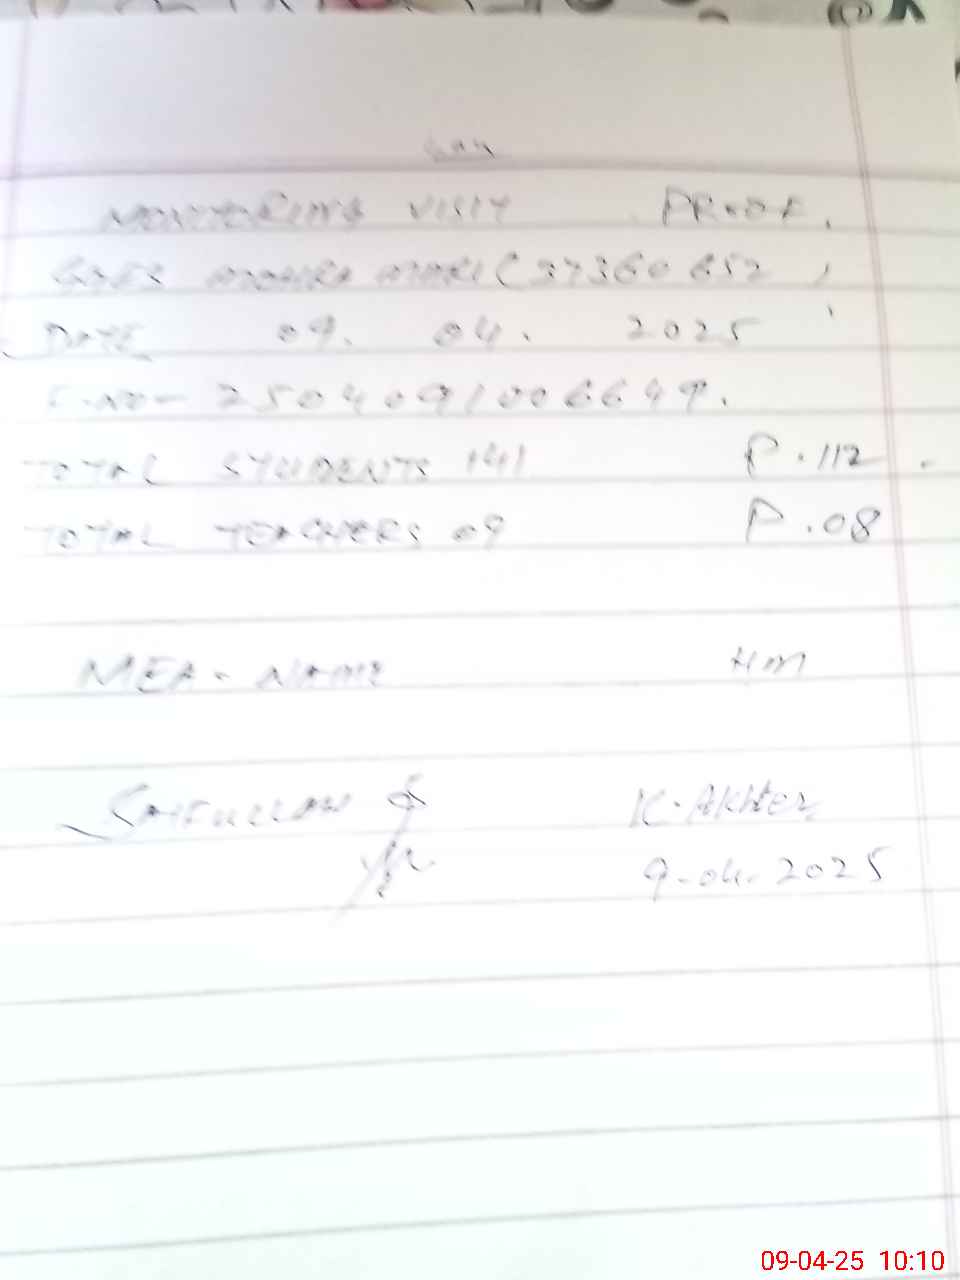 MONITORING VISIT PROOF.
(37360652)
DATE 09. 04. 2025
F.NO- 2504091006649.
TOTAL STUDENTS 141 P.112.
TOTAL TEACHERS 09 P.08
MEA- NAME HM
SAIFULLAH K.Akhter
9-04-2025
09-04-25 10:10